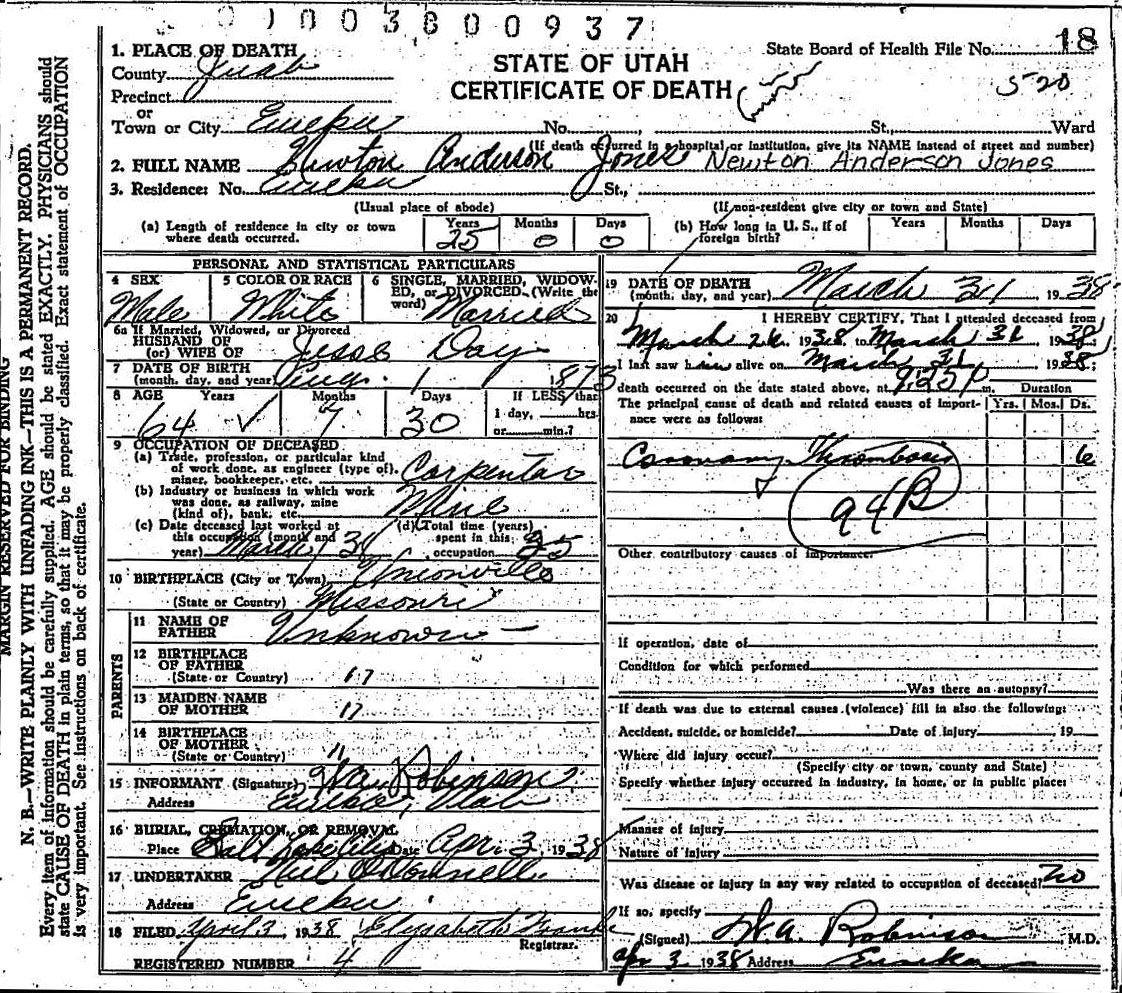 0 1 0 0 3 8 0 0 9 3 7
State Board of Health File No. 18
STATE OF UTAH
CERTIFICATE OF DEATH
520
1. PLACE OF DEATH
County Juab
Precinct
or
Town or City Eureka No. St., Ward
(If death occurred in a hospital or institution, give its NAME instead of street and number)
2. FULL NAME Newton Anderson Jones Newton Anderson Jones
3. Residence: No. Eureka St.,
(Usual place of abode) (If non-resident give city or town and State)
(a) Length of residence in city or town where death occurred. Years 25 Months 0 Days 0
(b) How long in U. S., if of foreign birth? Years Months Days
PERSONAL AND STATISTICAL PARTICULARS
4 SEX Male
5 COLOR OR RACE White
6 SINGLE, MARRIED, WIDOWED, or DIVORCED (Write the word) Married
6a If Married, Widowed, or Divorced
HUSBAND OF
(or) WIFE OF Jesse Day
7 DATE OF BIRTH
(month, day, and year) Aug. 1 1873
8 AGE Years 64 Months 7 Days 30 If LESS than 1 day, hrs. or min.?
9 OCCUPATION OF DECEASED
(a) Trade, profession, or particular kind
of work done, as engineer (type of),
miner, bookkeeper, etc. Carpenter
(b) Industry or business in which work
was done, as railway, mine
(kind of), bank, etc. Mine
(c) Date deceased last worked at
this occupation (month and
year) March / 38
(d) Total time (years)
spent in this
occupation 25
10 BIRTHPLACE (City or Town) Unionville
(State or Country) Missouri
PARENTS
11 NAME OF
FATHER Unknown —
12 BIRTHPLACE
OF FATHER
(State or Country) "
13 MAIDEN NAME
OF MOTHER "
14 BIRTHPLACE
OF MOTHER
(State or Country) "
15 INFORMANT (Signature) Robinson
Address Eureka, Utah
16 BURIAL, CREMATION, OR REMOVAL
Place Salt Lake City Date Apr. 3, 1938
17 UNDERTAKER O'Connell
Address Eureka
18 FILED April 3 1938 Elizabeth
Registrar.
REGISTERED NUMBER 4
19 DATE OF DEATH
(month, day, and year) March 31, 1938
20 I HEREBY CERTIFY, That I attended deceased from
March 26 1938 to March 31 1938
I last saw him alive on March 31 1938;
death occurred on the date stated above, at 9:25 P m. Duration
The principal cause of death and related causes of importance were as follows: Yrs. Mos. Ds.
Coronary Thrombosis 6
94B
Other contributory causes of importance:
If operation, date of
Condition for which performed
Was there an autopsy?
If death was due to external causes (violence) fill in also the following:
Accident, suicide, or homicide? Date of injury 19
Where did injury occur?
(Specify city or town, county and State)
Specify whether injury occurred in industry, in home, or in public place:
Manner of injury
Nature of injury
Was disease or injury in any way related to occupation of deceased? No
If so, specify
(Signed) W. A. Robinson M.D.
Apr 3 1938 Address Eureka
MARGIN RESERVED FOR BINDING
N. B.—WRITE PLAINLY WITH UNFADING INK—THIS IS A PERMANENT RECORD.
Every item of information should be carefully supplied. AGE should be stated EXACTLY. PHYSICIANS should
state CAUSE OF DEATH in plain terms, so that it may be properly classified. Exact statement of OCCUPATION
is very important. See instructions on back of certificate.